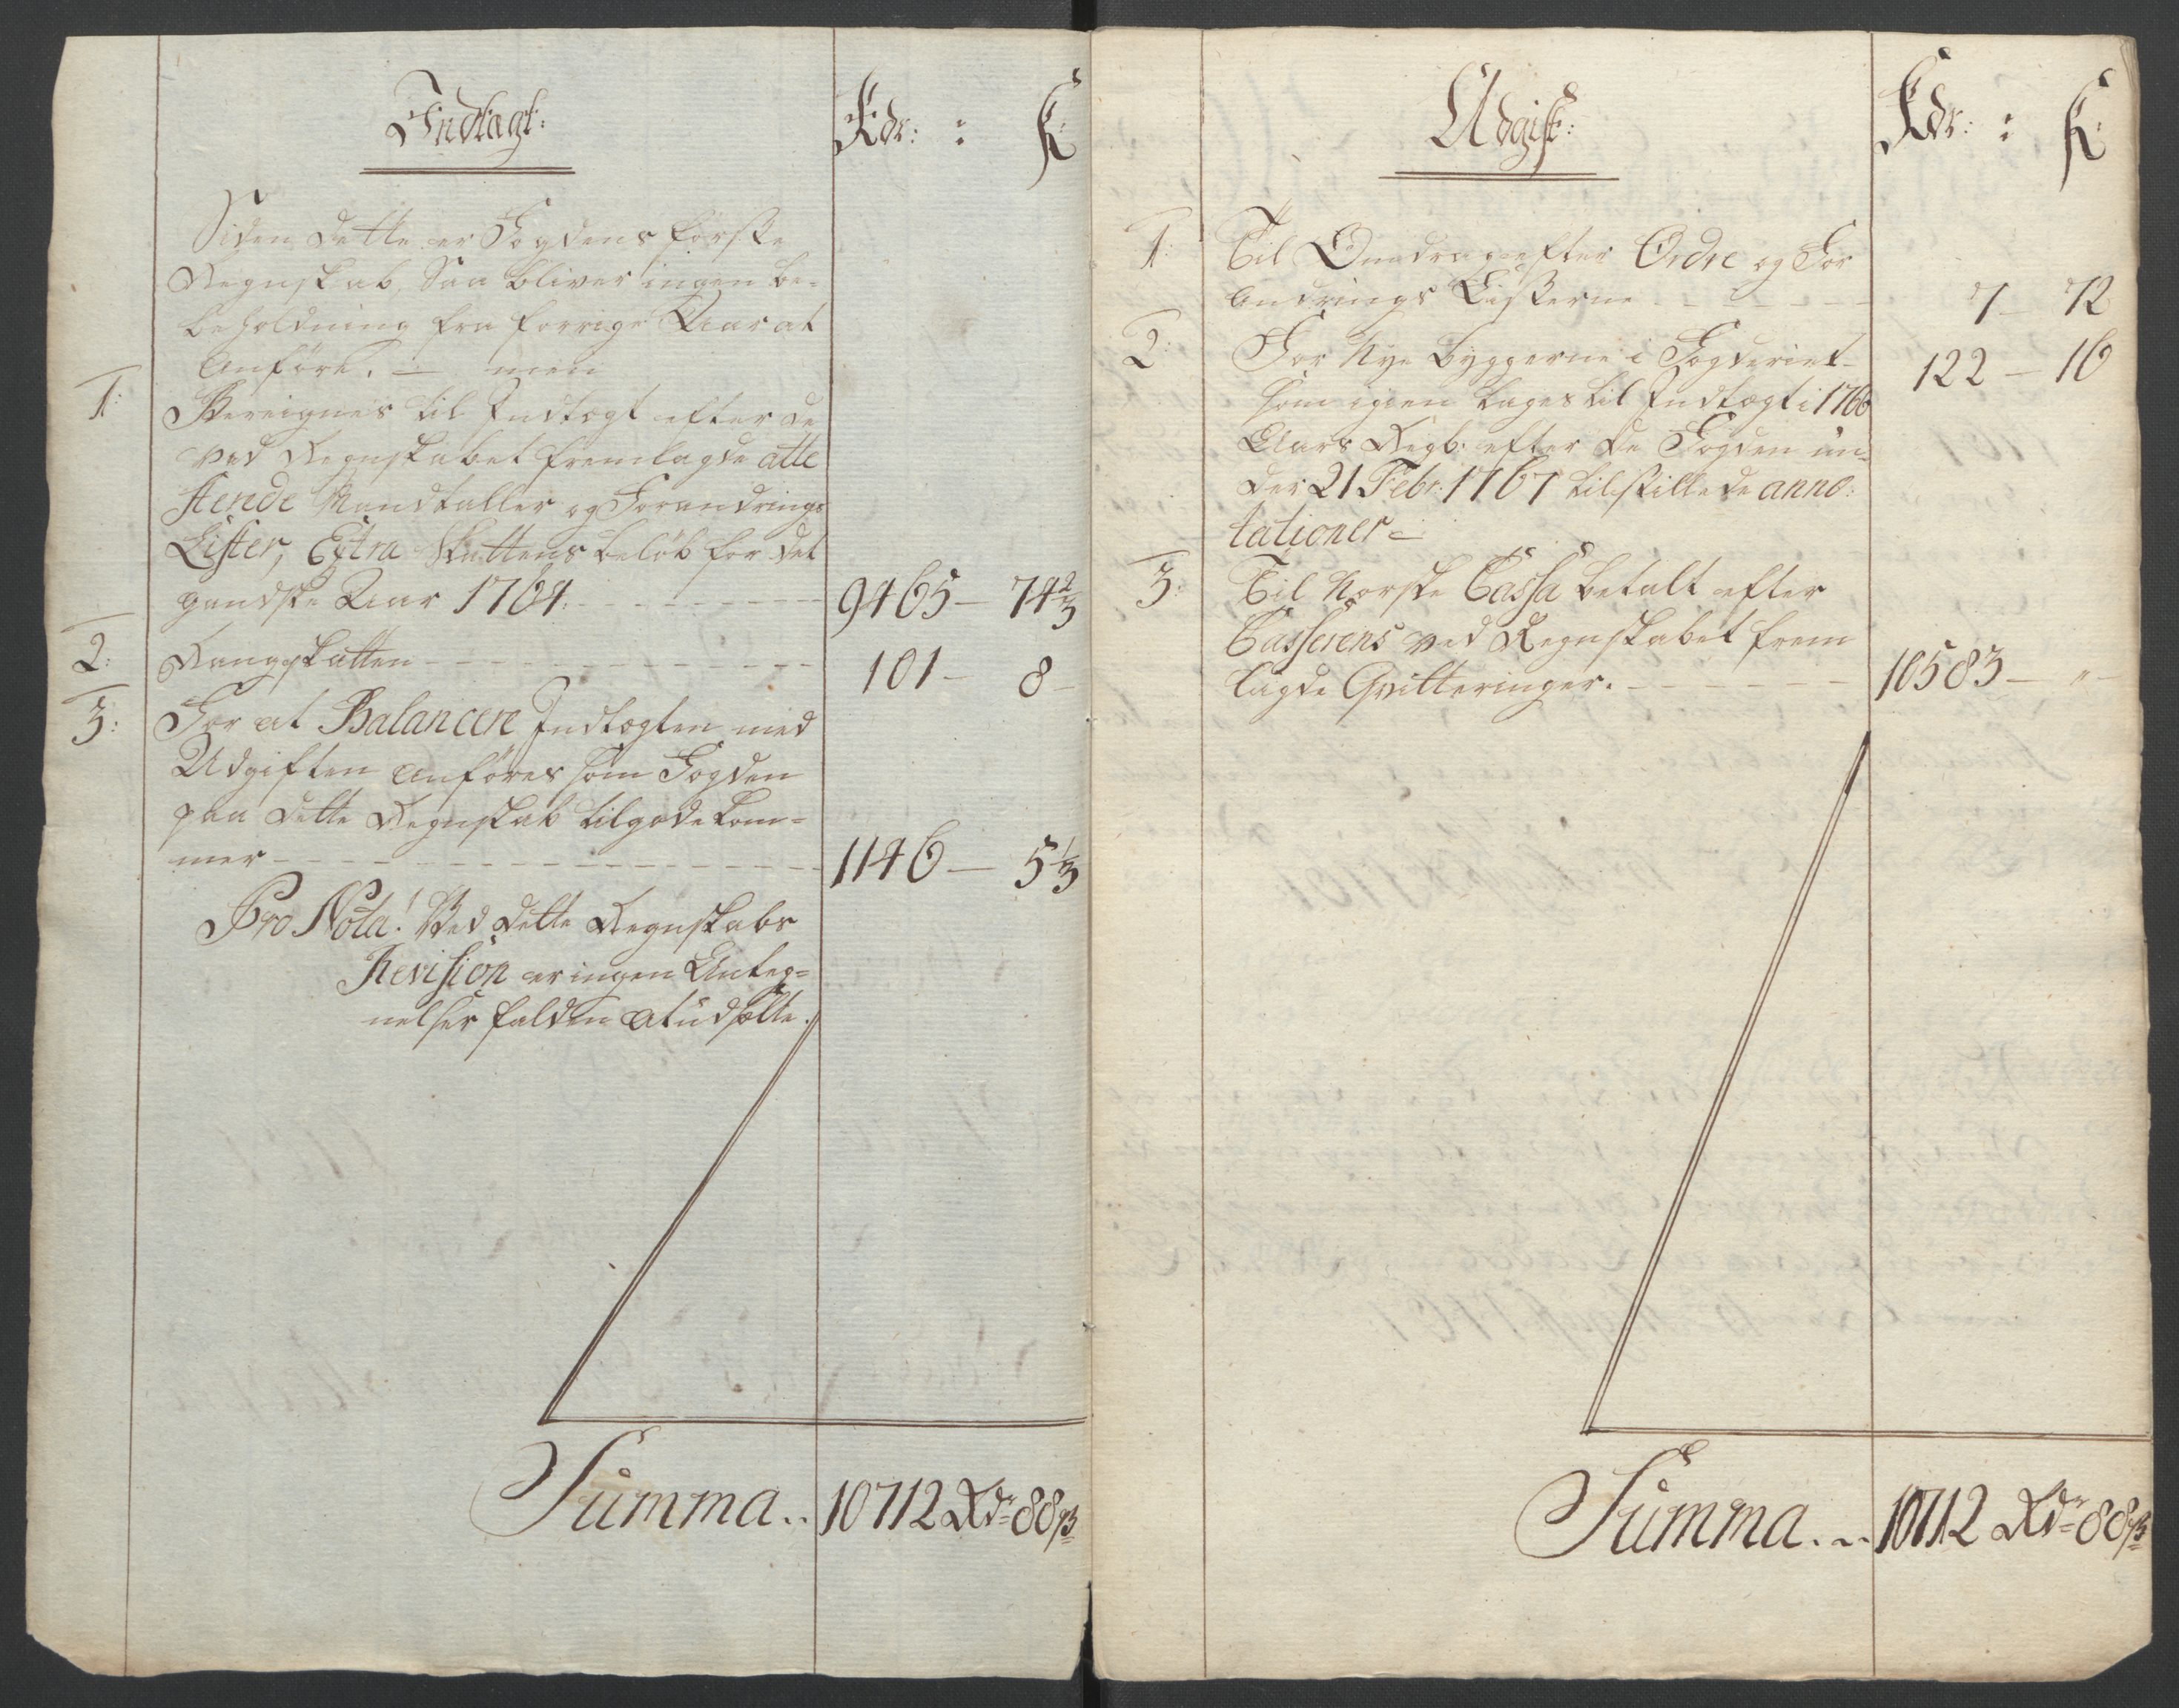 Indtægt:
Rdr: : ß
Siden dette er Fogdens første
Regnskab, Saa bliver ingen be-
beholdning fra forrige Aar at
Anføre. — men
1: Bereignes til Indtægt efter de
ved Regnskabet fremlagde atte
sterede Mandtaller og Forandrings
Lister, Extra Skattens beløb for det
gandske Aar 1764: 9465 — 74 2/3
2: Rangskatten 101 — 8 —
3: For at Balancere Indtægten med
Udgiften anføres som Fogden
paa dette Regnskab tilgode kom-
mer 1146 — 5 1/3
Pro Nota! Ved dette Regnskabs
Revision er ingen Anteg-
nelser falden at udsætte.
Summa.. 10712 Rdr 88 ß
Udgift:
Rdr: : ß
1: Til efter Ordre og For
andrings Listerne 7 — 72
2: For Nye byggerne i Fogderiet 122 — 16
som igien tages til Indtægt i 1766
Aars Regb: efter de Fogden un-
der 21 Febr: 1767 tilstillede anno-
tationer —
3: Til Norske Cassa betalt efter
Casserens ved Regnskabet frem
lagde Qvitteringer. 10583 — " —
Summa... 10712 Rdr 88 ß